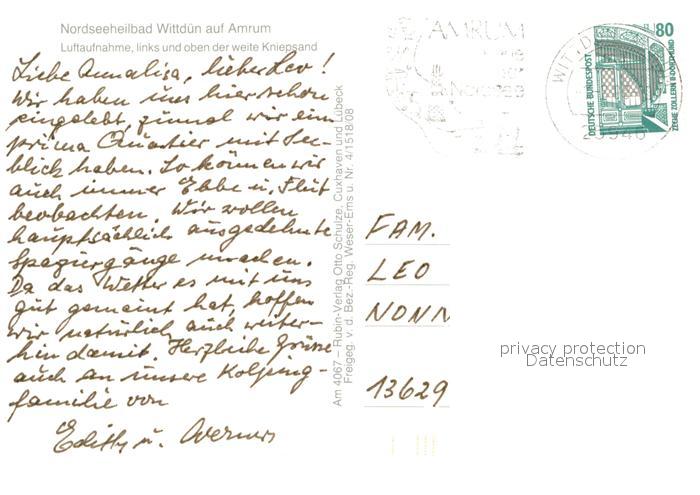 Nordseeheilbad Wittdün auf Amrum
Luftaufnahme, links und oben der weite Kniepsand
Liebe Annalisa, lieber Leo!
Wir haben uns hier schon
eingelebt, zumal wir ein
prima Quartier mit See-
blick haben. So können wir
auch immer Ebbe u. Flut
beobachten. Wir wollen
hauptsächlich ausgedehnte
Spaziergänge machen.
Da das Wetter es mit uns
gut gemeint hat, hoffen
wir natürlich auch weiter-
hin damit. Herzliche Grüsse
auch an unsere Kolping-
familie von
Edith u. Werner
Am 4067 – Rubin-Verlag Otto Schulze, Cuxhaven und Lübeck
Freigeg. v. d. Bez.-Reg. Weser-Ems u. Nr. 4/1518/08
AMRUM
Nordsee
WITTD
25946
80
DEUTSCHE BUNDESPOST
ZECHE ZOLLERN II · DORTMUND
FAM.
LEO
NONN
13629
privacy protection
Datenschutz